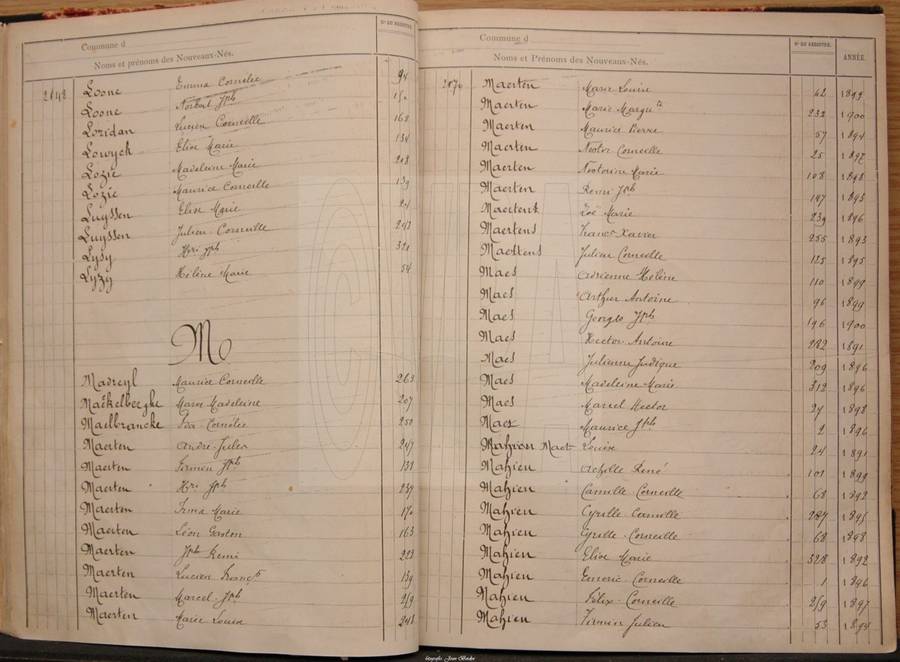 Commune d
N° DU REGISTRE.
Noms et prénoms des Nouveaux-Nés.
2048 Loone Emma Cornélie 94
Loone Norbert Jph
Loridan Lucien Corneille 163
Lowyck Elise Marie 134
Lozie Madeleine Marie 208
Lozie Maurice Corneille 139
Luyssen Elise Marie 24
Luyssen Julien Corneille 243
Lysy Hri Jph 321
Lyzy Hélène Marie 54
M
Madreyl Maurice Corneille 263
Maëkelberghe Marie Madeleine 207
Maelbrancke Ida Cornélie 250
Maerten André Jules 247
Maerten Firmin Jph 131
Maerten Hri Jph 237
Maerten Irma Marie 170
Maerten Léon Gaston 163
Maerten Jph Remi 223
Maerten Lucien Franç 139
Maerten Marcel Jph 219
Maerten Marie Louise 248
Commune d
N° DU REGISTRE.
ANNÉE.
Noms et Prénoms des Nouveaux-Nés.
2070 Maerten Marie Louise 42 1899
Maerten Marie Margte 232 1900
Maerten Maurice Pierre 57 1894
Maerten Nestor Corneille 25 1897
Maerten Nestorine Marie 108 1898
Maerten Remi Jph 147 1895
Maertens Zoé Marie 239 1896
Maertens Franç Xavier 255 1893
Maertens Julien Corneille 125 1895
Maes Adrienne Hélène 110 1899
Maes Arthur Antoine 96 1899
Maes Georges Jph 196 1900
Maes Hector Antoine 282 1891
Maes Julienne 209 1896
Maes Madeleine Marie 312 1896
Maes Marcel Hector 27 1898
Maes Maurice Jph 2 1896
Mahieu Louise 24 1891
Mahieu Achille René 101 1899
Mahieu Camille Corneille 68 1892
Mahieu Cyrille Camille 287 1895
Mahieu Cyrille Corneille 68 1898
Mahieu Elise Marie 328 1892
Mahieu Emeric Corneille 1 1896
Mahieu Félix Corneille 219 1897
Mahieu Firmin Julien 53 1894